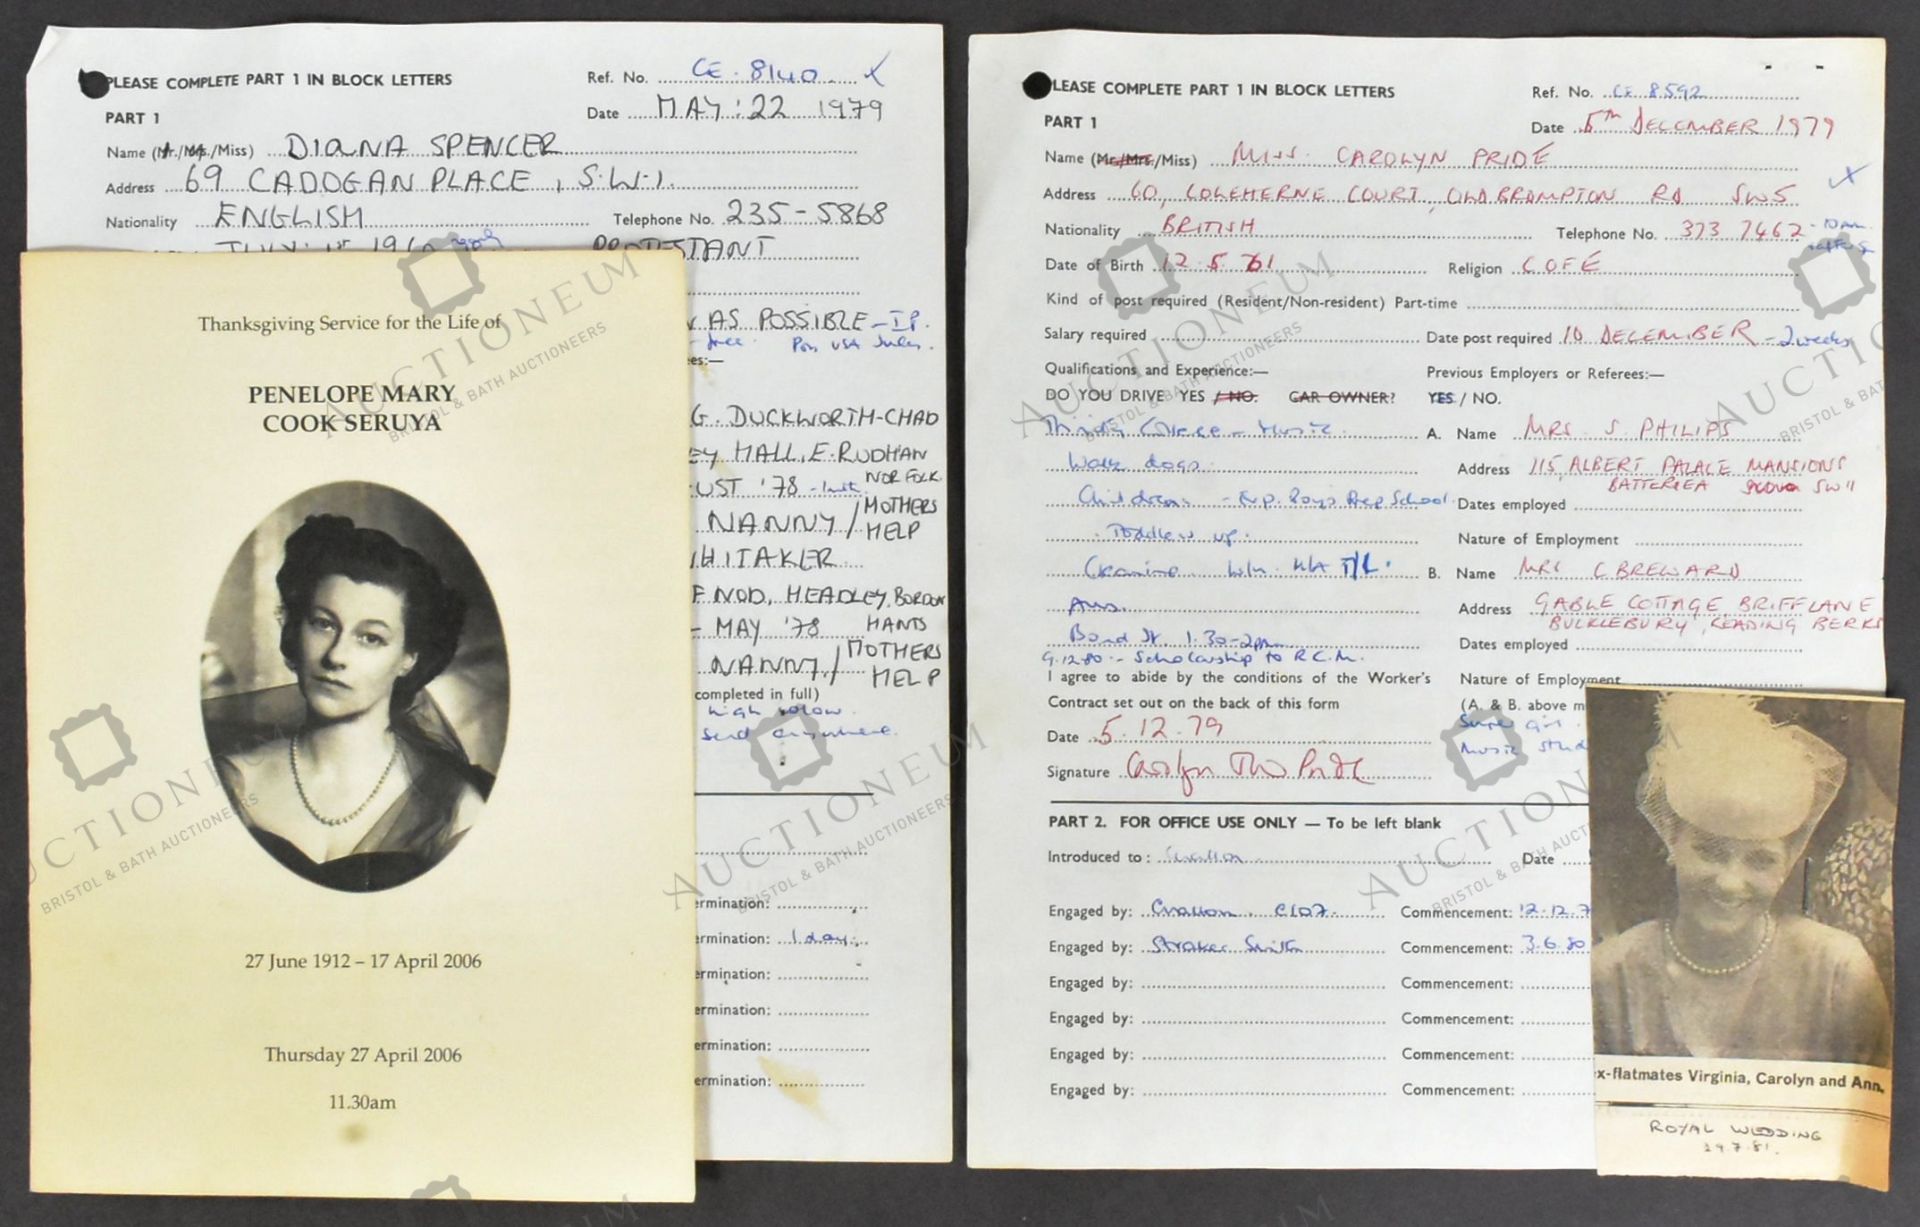 PLEASE COMPLETE PART 1 IN BLOCK LETTERS
Ref. No. CE. 8140
PART 1
Date MAY: 22 1979
Name (Mr./Mrs./Miss) DIANA SPENCER
Address 69 CADOGAN PLACE, S.W.1.
Nationality ENGLISH Telephone No. 235-5868
JULY 1st 196 PROTESTANT
AS POSSIBLE - I.P.
es:—
G. DUCKWORTH-CHAD
EY HALL, E. RUDHAN
NORFOLK
UST '78
NANNY / MOTHERS HELP
HITAKER
F NOD, HEADLEY, BORDON
- MAY '78 HANTS
NANNY / MOTHERS HELP
completed in full)
send anywhere.
ermination:
ermination: 1 day
ermination:
ermination:
ermination:
ermination:
Thanksgiving Service for the Life of
PENELOPE MARY
COOK SERUYA
27 June 1912 – 17 April 2006
Thursday 27 April 2006
11.30am
LEASE COMPLETE PART 1 IN BLOCK LETTERS
Ref. No. CE 8592
PART 1
Date 5th DECEMBER 1979
Name (Mr./Mrs./Miss) MISS. CAROLYN PRIDE
Address 60, COLEHERNE COURT, OLD BROMPTON RD SW5
Nationality BRITISH Telephone No. 373 7462
Date of Birth 12.5.61 Religion C OF E
Kind of post required (Resident/Non-resident) Part-time
Salary required Date post required 10 DECEMBER - 2 weeks
Qualifications and Experience:— Previous Employers or Referees:—
DO YOU DRIVE YES / NO. CAR OWNER? YES / NO.
A. Name MRS S PHILIPS
Walk dogs
Address 115, ALBERT PALACE MANSIONS
BATTERSEA SW11
Dates employed
Toddlers up.
Nature of Employment
B. Name MRS C BREWARD
Address GABLE COTTAGE, BRIFF LANE
BUCKLEBURY, READING BERKS
Bond St. 1.30-2pm
Dates employed
9.12.80 - Scholarship to R.C.M.
I agree to abide by the conditions of the Worker's Nature of Employment
Contract set out on the back of this form (A. & B. above m
Super girl.
Date 5.12.79 Music stud
Signature Carolyn Pride
PART 2. FOR OFFICE USE ONLY — To be left blank
Introduced to: Date
Engaged by: Commencement: 12.12.7
Engaged by: Straker Smith Commencement: 3.6.80
Engaged by: Commencement:
Engaged by: Commencement:
Engaged by: Commencement:
Engaged by: Commencement:
x-flatmates Virginia, Carolyn and Ann.
ROYAL WEDDING
29.7.81.
AUCTIONEUM
BRISTOL & BATH AUCTIONEERS